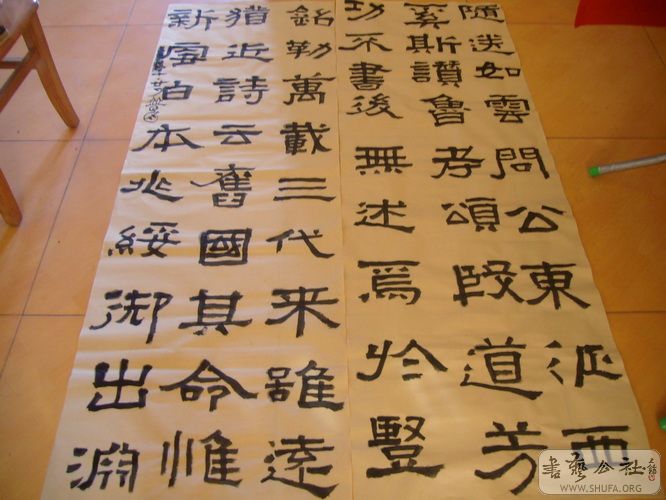 隨送如雲問公東征西
奚斯讃魯孝頌殷道芳
功不書後無述焉於豎
銘勒萬載三代来雖遠
猶近詩云舊國其命惟
新本兆綏御出淵
書藝公社
WWW.SHUFA.ORG